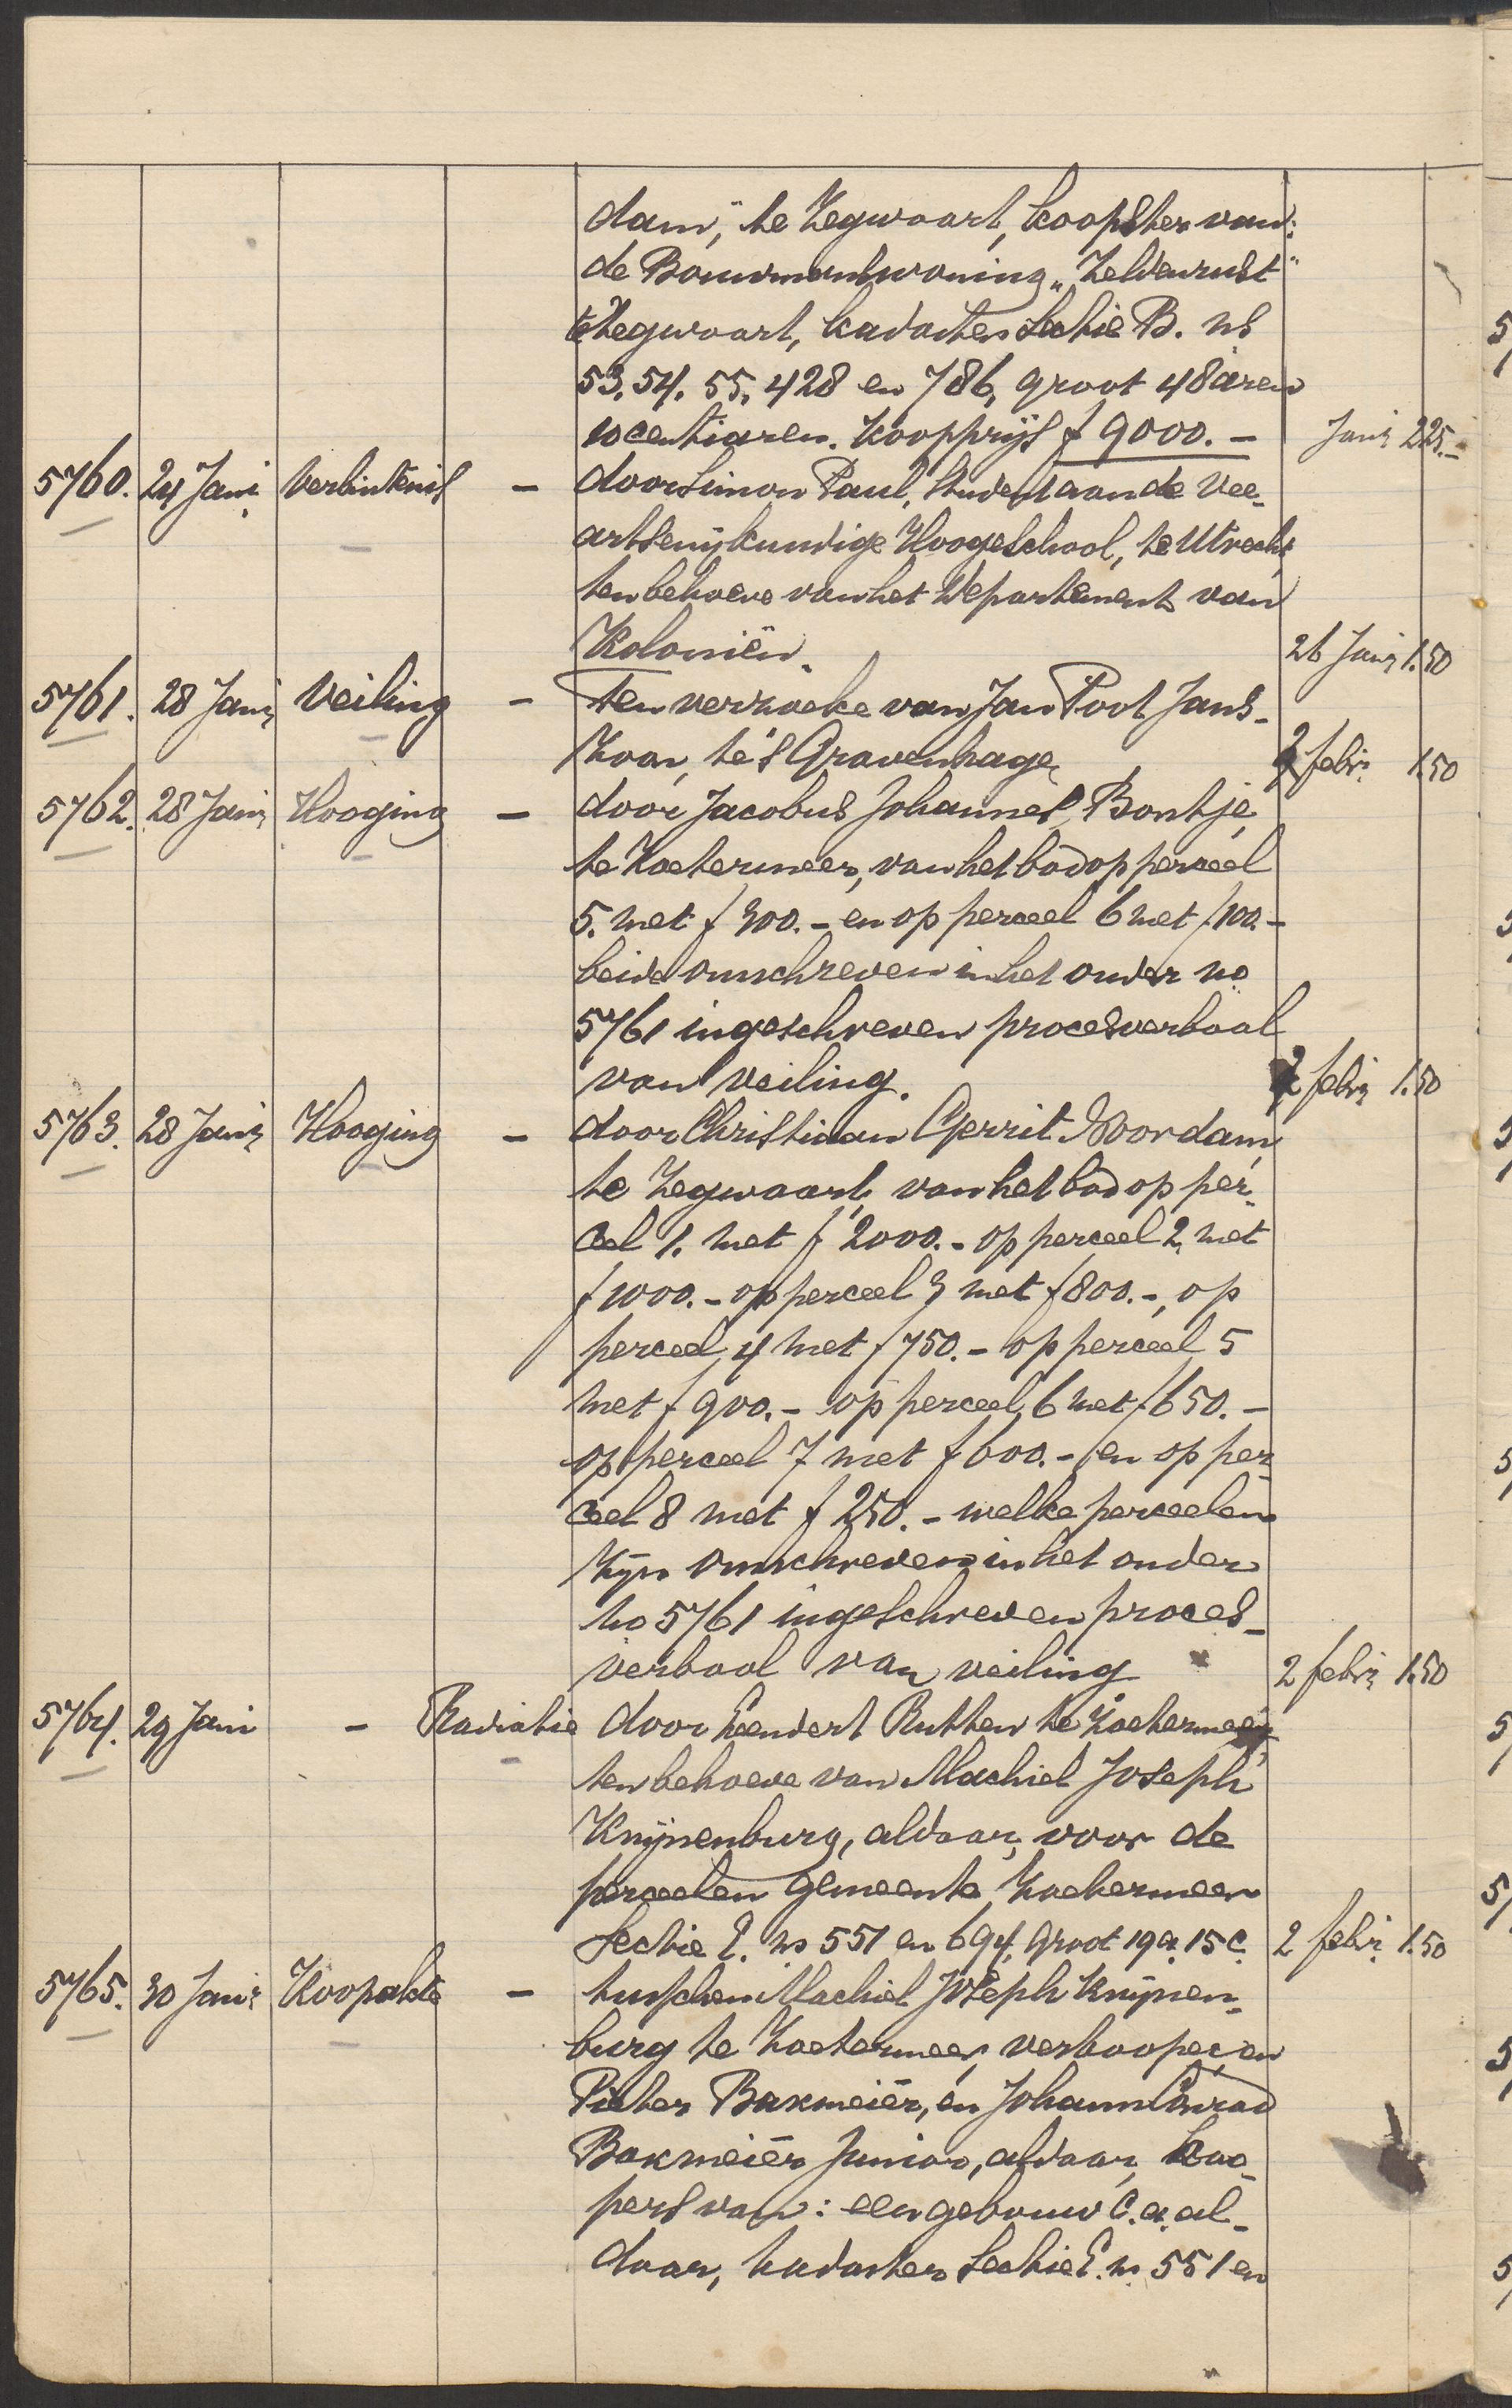 dam," te Zegwaart, koopster van:
de Bouwmanswoning "Zeldenrust"
te Zegwaart, kadaster Sectie B. ns
53. 54. 55. 428 en 786, groot 48 aren
10 centiaren. Koopprijs f 9000.- Jan: 225.-
5760. 24 Jani Verbintenis - door Simon Paul, Student aan de Vee-
artsenijkundige Hoogeschool, te Utrecht,
ten behoeve van het Departement van
Koloniën. 26 Jani 1.50
5761. 28 Jani Veiling - Ten verzoeke van Jan Poot Jans-
zoon, te 's Gravenhage 2 febr: 1.50
5762. 28 Jani Hooging - door Jacobus Johannes Bontje,
te Zoetermeer, van het bod op perceel
5. met f 300.- en op perceel 6 met f 100.-
beide omschreven in het onder no
5761 ingeschreven procesverbaal
van veiling. 2 febri 1.50
5763. 28 Jani Hooging - door Christiaan Gerrit Noordam,
te Zegwaart, van het bod op per-
ceel 1. met f 2000.- op perceel 2 met
f 1000.- op perceel 3 met f 800.-, op
perceel 4 met f 750.- op perceel 5
met f 900.- op perceel 6 met f 650.-
op perceel 7 met f 600.- en op per-
ceel 8 met f 250.- welke perceelen
zijn omschreven in het onder
no 5761 ingeschreven proces-
verbaal van veiling 2 febri 1.50
5764. 29 Jani - Radiatie door Leendert Rutten te Zoetermeer,
ten behoeve van Machiel Joseph
Knijnenburg, aldaar, voor de
perceelen Gemeente Zoetermeer
Sectie E. ns 551 en 694, groot 19 a. 15 c. 2 febr: 1.50
5765. 30 Jani Koopakte - tusschen Machiel Joseph Knijnen-
burg te Zoetermeer, verkooper, en
Pieter Bakmeier, en Johann Conrad
Bakmeier Junior, aldaar, koo-
pers van: een gebouw c.a. al-
daar, kadaster Sectie E. ns 551 en